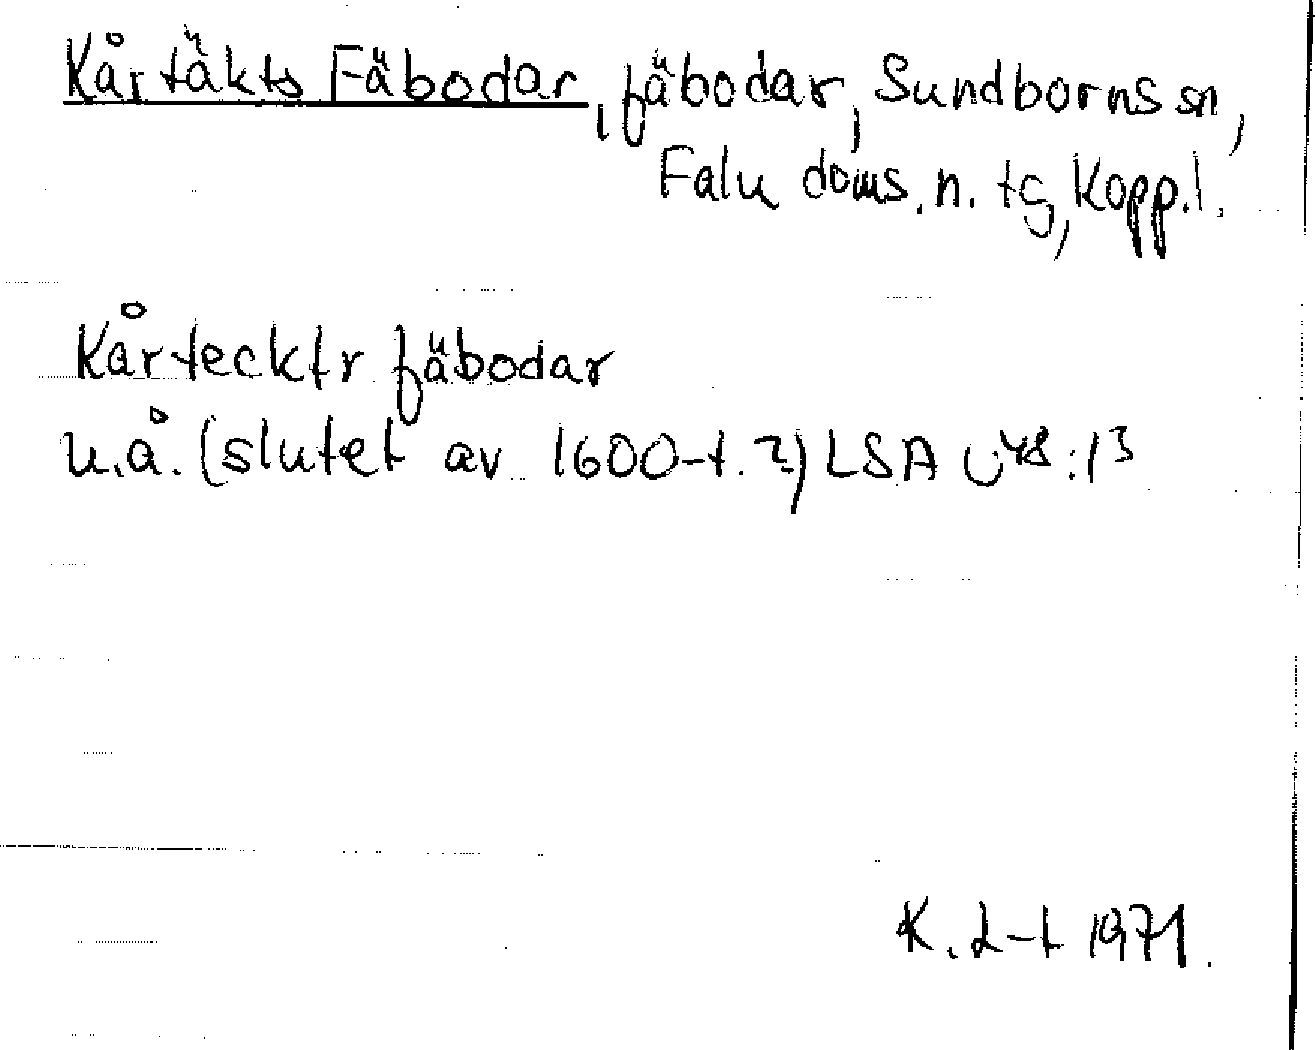 Kårtäkts Fäbodar, fäbodar, Sundborns sn,
Falu doms. n. tg, Kopp.l.
Kårtecktr fäbodar
u.å. (slutet av 1600-t.?) LSA U48:13
K. L-t 1971.